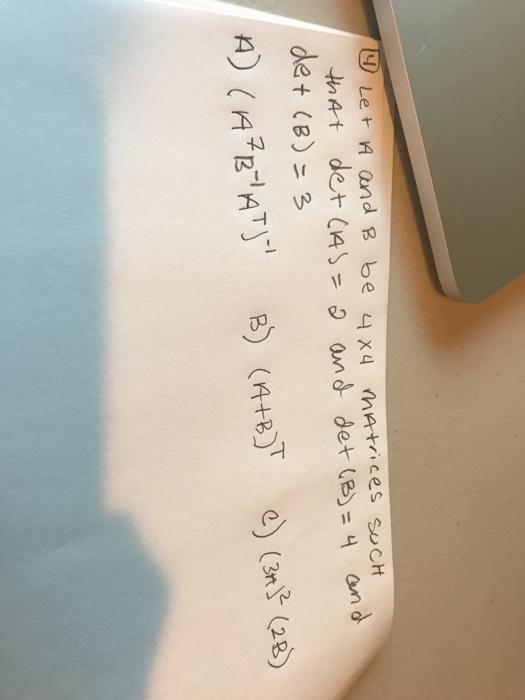 14 Let A and B be 4x4 matrices such
that det (A) = 2 and det (B) = 4 and
det (B) = 3
A) (A⁷B⁻¹Aᵀ)⁻¹ B) (A+B)ᵀ C) (3A)² (2B)